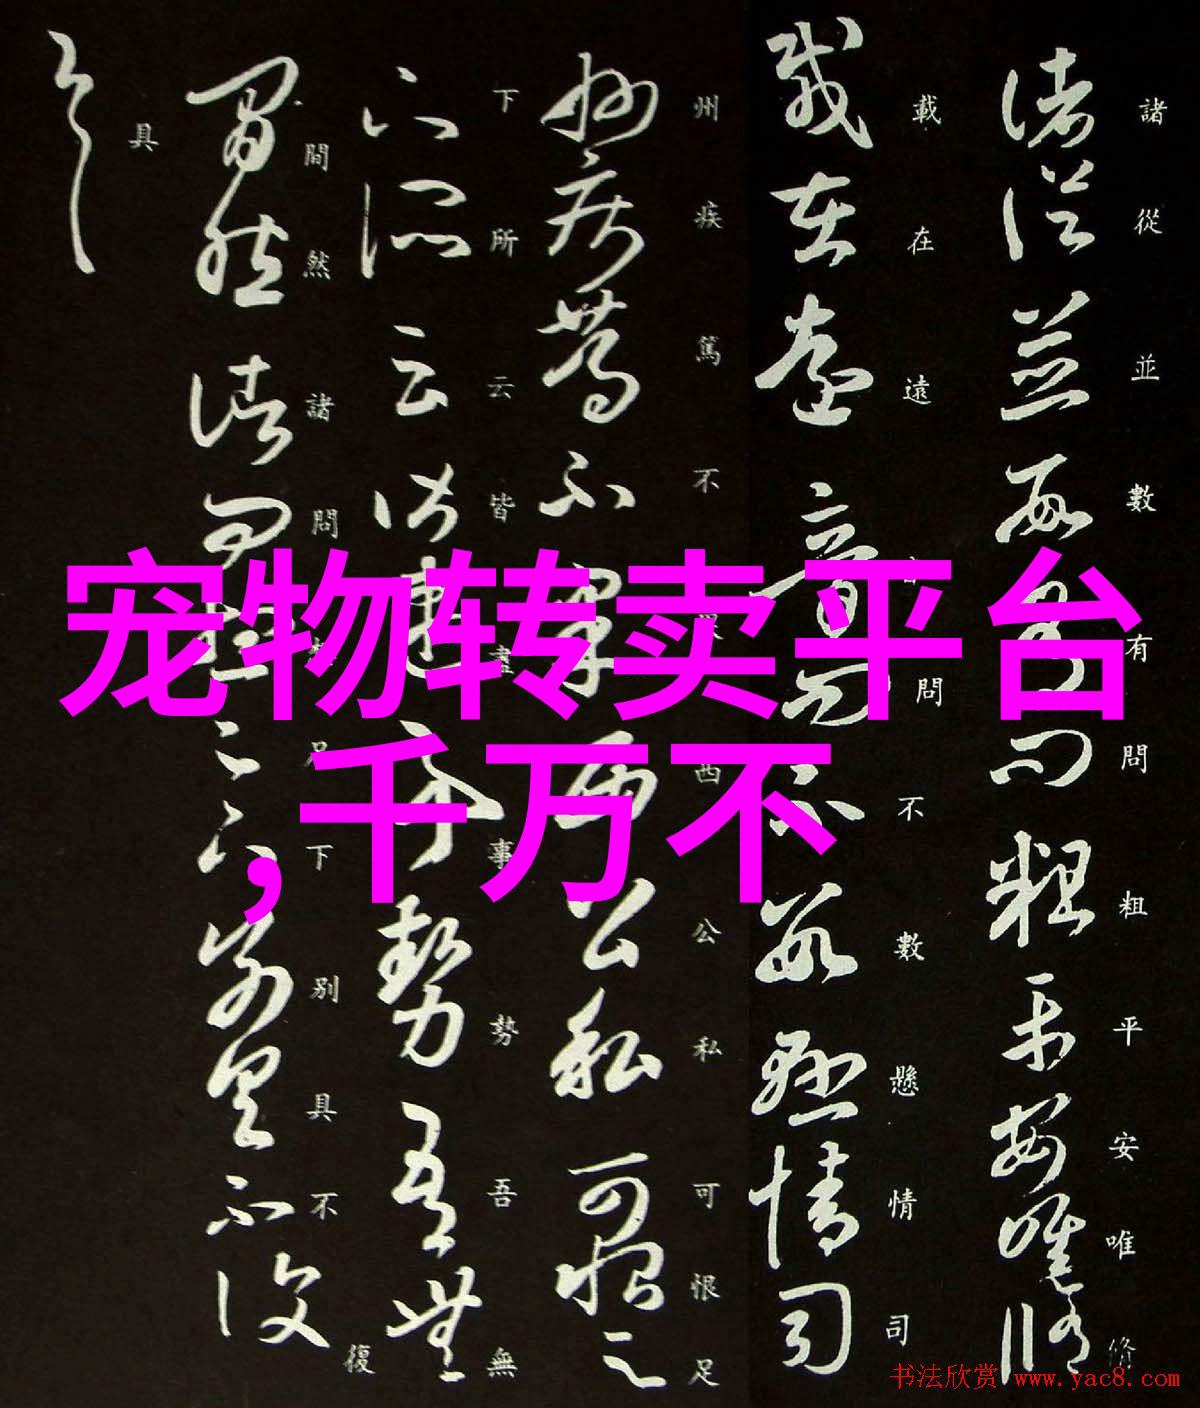 諸從並數有問粗平安唯修
載在遠音問不數懸情司
州疾篤不果西公私可恨足
下所云皆盡事勢吾無
間然諸問想足下別具不復
具
宠物转卖平台
,千万不
书法欣赏 www.yac8.com